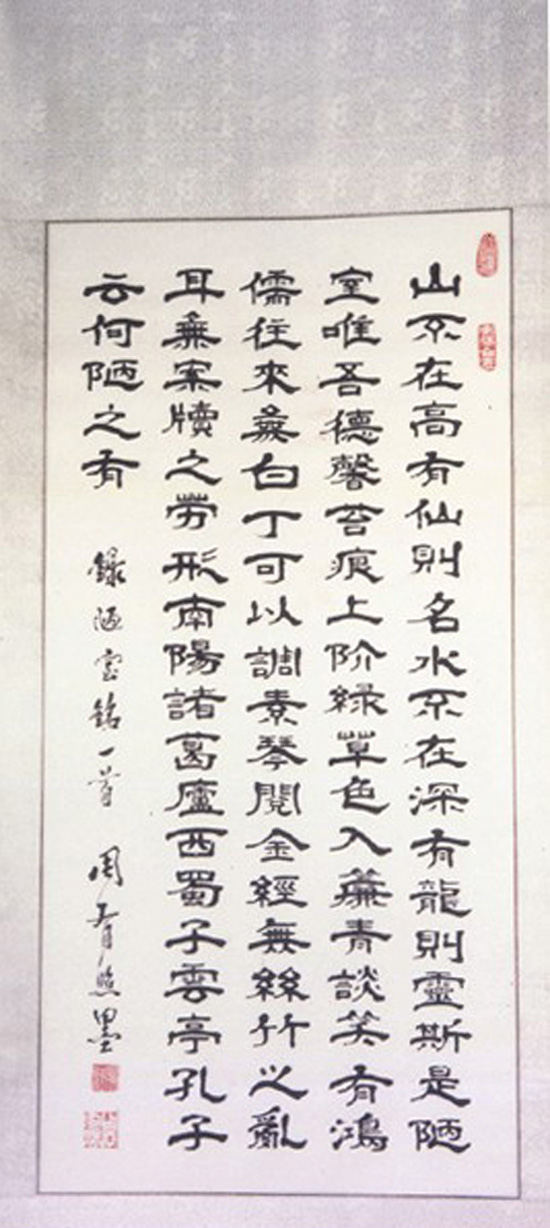 山不在高有仙則名水不在深有龍則靈斯是陋
室唯吾德馨苔痕上阶緑草色入簾青談笑有鴻
儒往來無白丁可以調素琴閱金經無絲竹之亂
耳無案牘之勞形南陽諸葛廬西蜀子雲亭孔子
云何陋之有
録陋室銘一首 周
墨